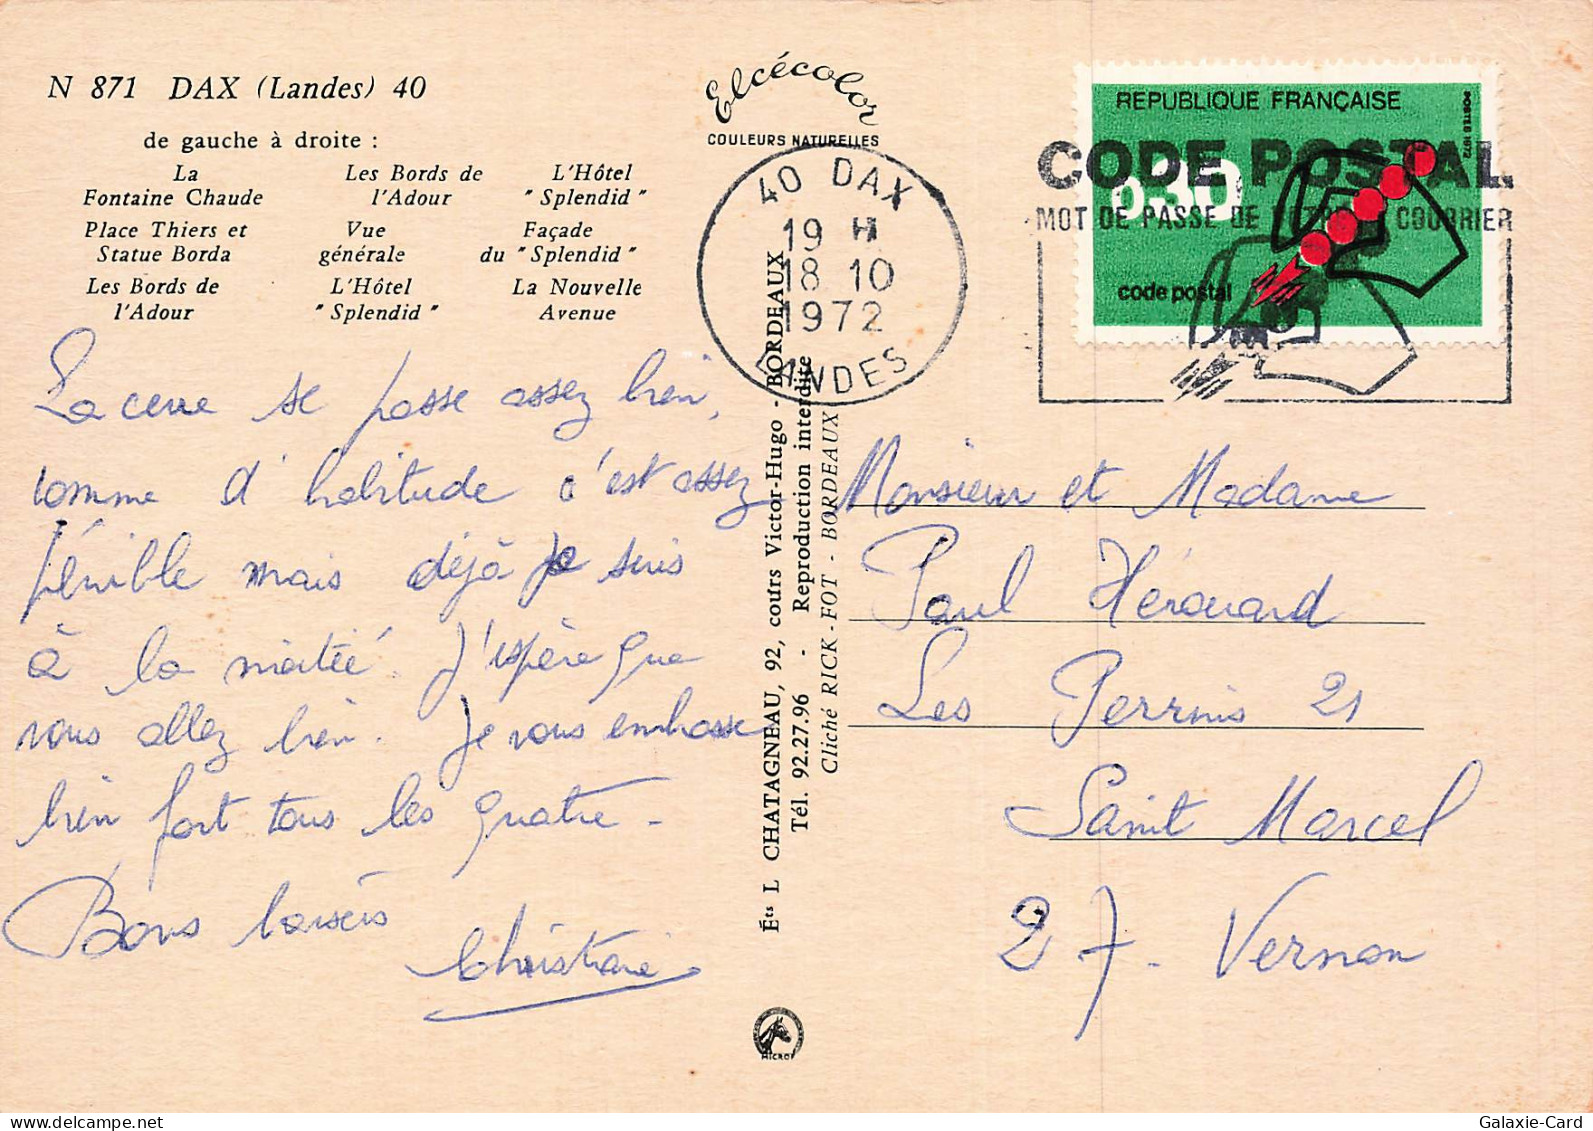 N 871 DAX (Landes) 40
de gauche à droite :
La Fontaine Chaude
Les Bords de l'Adour
L'Hôtel "Splendid"
Place Thiers et Statue Borda
Vue générale
Façade du "Splendid"
Les Bords de l'Adour
L'Hôtel "Splendid"
La Nouvelle Avenue
La cure se passe assez bien,
comme d'habitude c'est assez
pénible mais déjà je suis
à la moitié. J'espère que
vous allez bien. Je vous embrasse
bien fort tous les quatre -
Bons baisers
Christiane
Elcécolor
COULEURS NATURELLES
40 DAX
19 H
18 10
1972
LANDES
Éts L CHATAGNEAU, 92, cours Victor-Hugo - BORDEAUX
Tél. 92.27.96 - Reproduction interdite
Cliché RICK-FOT - BORDEAUX
MICRO
REPUBLIQUE FRANÇAISE
POSTES 1972
0,30
code postal
CODE POSTAL
MOT DE PASSE DE VOTRE COURRIER
Monsieur et Madame
Paul Hérouard
Les Perrins 21
Saint Marcel
27 - Vernon
Galaxie-Card